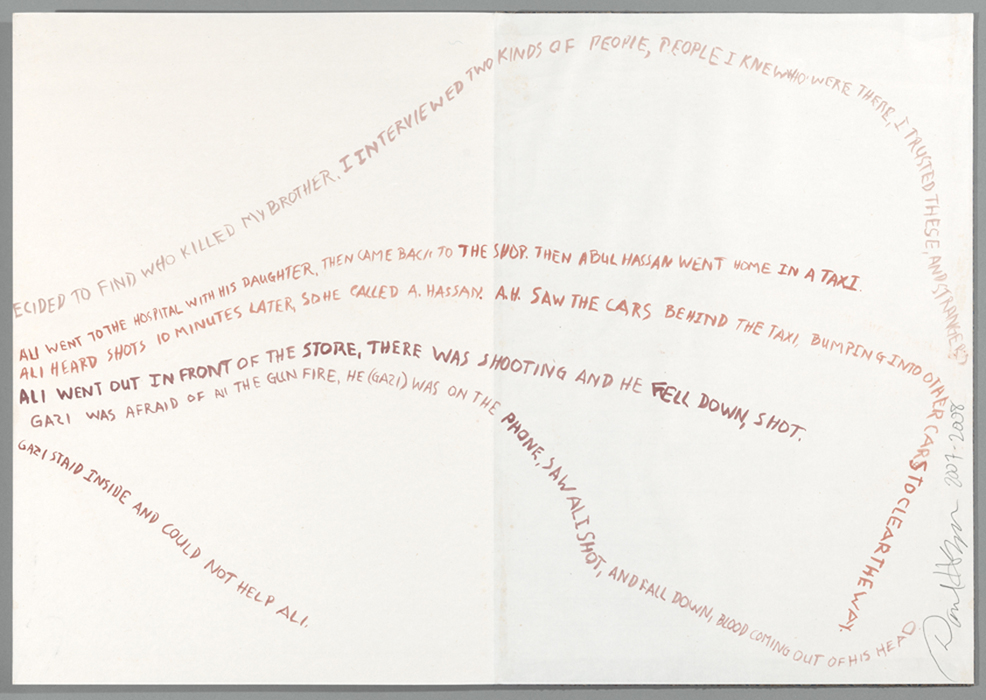 ECIDED TO FIND WHO KILLED MY BROTHER. I INTERVIEWED TWO KINDS OF PEOPLE, PEOPLE I KNEW WHO WERE THERE, I TRUSTED THESE, AND STRANGERS
ALI WENT TO THE HOSPITAL WITH HIS DAUGHTER, THEN CAME BACK TO THE SHOP. THEN ABUL HASSAN WENT HOME IN A TAXI.
ALI HEARD SHOTS 10 MINUTES LATER, SO HE CALLED A. HASSAN. A.H. SAW THE CARS BEHIND THE TAXI, BUMPING INTO OTHER CARS TO CLEAR THE WAY.
ALI WENT OUT IN FRONT OF THE STORE, THERE WAS SHOOTING AND HE FELL DOWN, SHOT.
GAZI WAS AFRAID OF All THE GUN FIRE, HE (GAZI) WAS ON THE PHONE, SAW ALI SHOT, AND FALL DOWN, BLOOD COMING OUT OF HIS HEAD
GAZI STAID INSIDE AND COULD NOT HELP ALI.
2007-2008